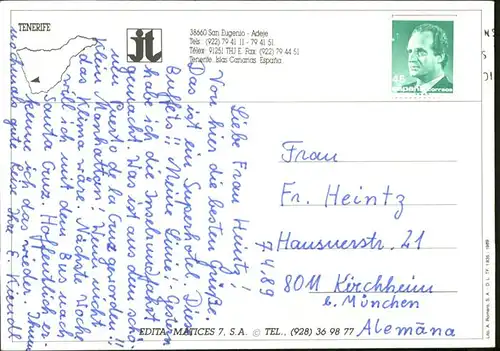 TENERIFE
jt
38660 San Eugenio - Adeje
Tels. (922) 79 41 11 - 79 41 51
Télex 91251 THJ E Fax (922) 79 44 51
Tenerife. Islas Canarias España
45
españa correos
7.4.89
Liebe Frau Heintz!
Von hier die besten Grüße.
Das ist ein Superhotel. Diese
Buffets!! Meine Linie. Gestern
habe ich die Inselrundfahrt
gemacht. Was ist aus dem schö-
nen Puerto de la Cruz geworden!!
Klein Manhattan! Wenn nicht
das Klima wäre. Nächste Woche
will ich mit dem Bus nach
Santa Cruz. Hoffentlich er-
kenne ich das wieder. Ihnen
gute Reise Ihre E.
Frau
Fr. Heintz
Hausnerstr. 21
8011 Kirchheim
b. München
Alemāna
EDITA: MATICES 7, S.A. © TEL., (928) 36 98 77